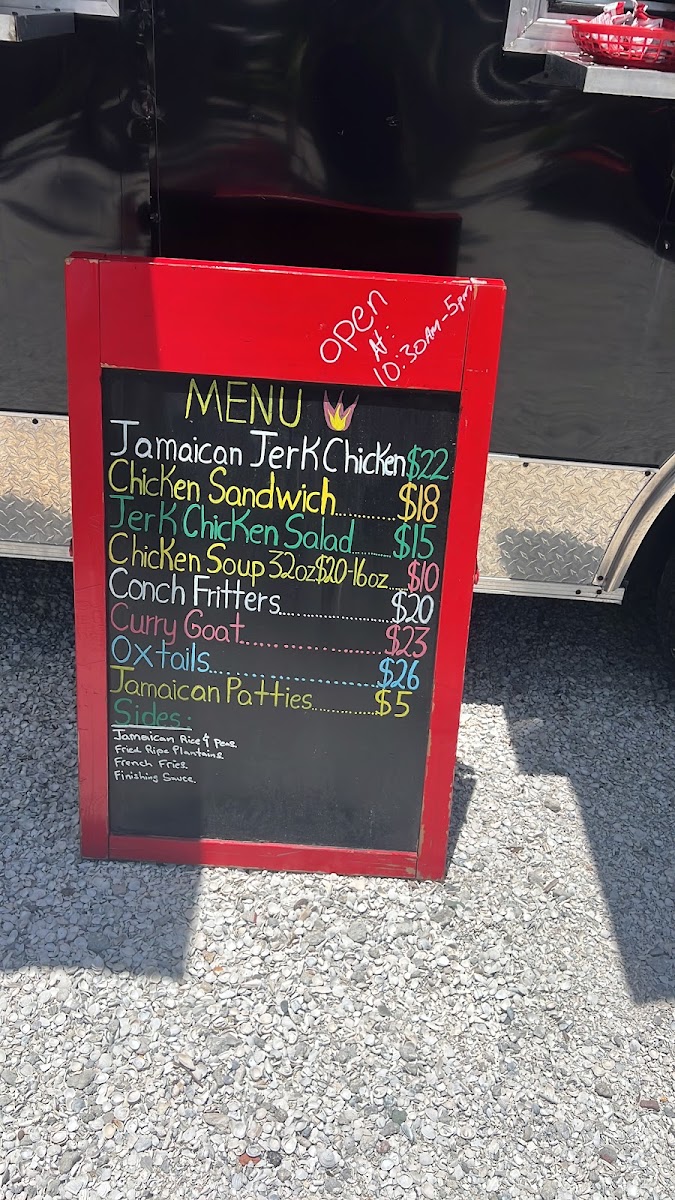 open
At:
10:30AM-5pm
MENU
Jamaican Jerk Chicken $22
Chicken Sandwich..........$18
Jerk Chicken Salad.......$15
Chicken Soup 32oz $20-16oz....$10
Conch Fritters................$20
Curry Goat....................$23
Oxtails........................$26
Jamaican Patties............$5
Sides:
Jamaican Rice & Peas
Fried Ripe Plantains
French Fries
Finishing Sauce.